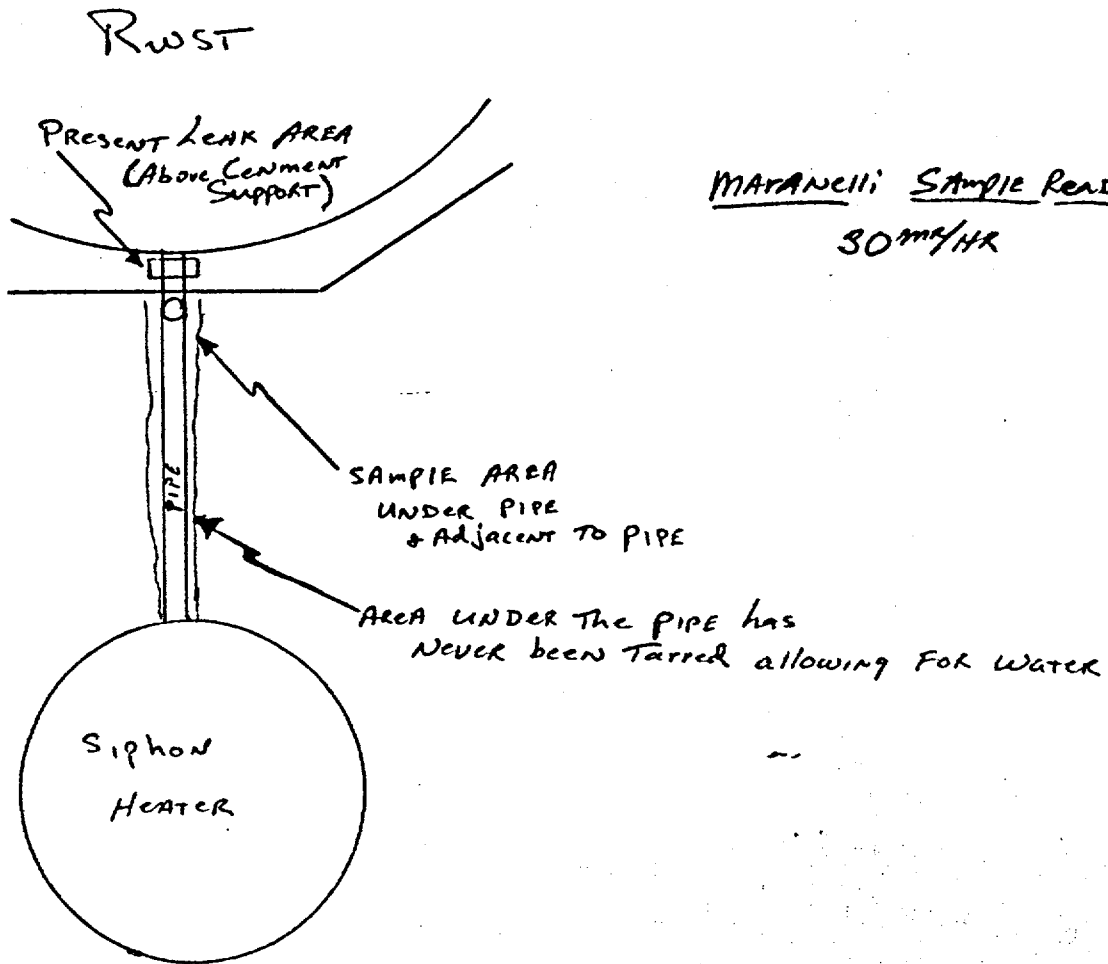 RWST
PRESENT LEAK AREA
(Above Cenment
Support)
MARANelli SAMPLE Read
30 MR/HR
PIPE
SAMPLE AREA
UNDER PIPE
& Adjacent To PIPE
AREA UNDER The PIPE has
NEVER been Tarred allowing FOR WATER
Siphon
HEATER